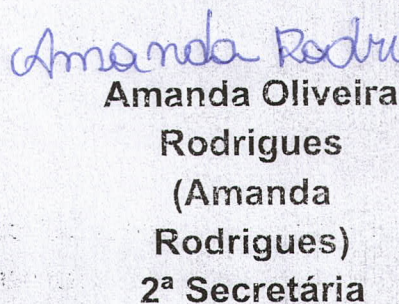 Amanda Rodri
Amanda Oliveira
Rodrigues
(Amanda
Rodrigues)
2ª Secretária